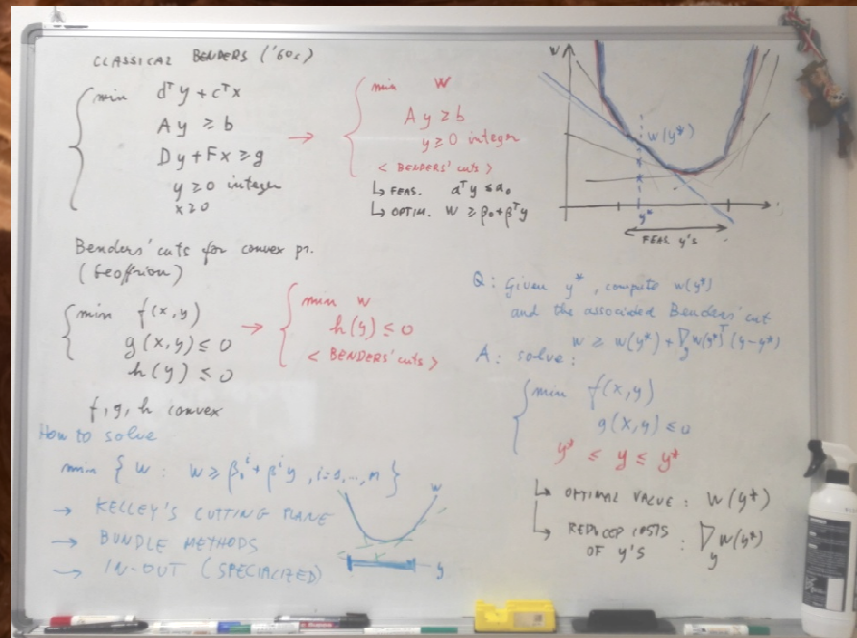 CLASSICAL BENDERS ('60s)
min dᵀy + cᵀx
Ay ≥ b
Dy + Fx ≥ g
y ≥ 0 integer
x ≥ 0
→
min w
Ay ≥ b
y ≥ 0 integer
< BENDERS' cuts >
↳ FEAS. αᵀy ≤ α₀
↳ OPTIM. w ≥ β₀ + βᵀy
w
w(y*)
y*
FEAS. y's
Benders' cuts for convex pr.
(Geoffrion)
min f(x,y)
g(x,y) ≤ 0
h(y) ≤ 0
f, g, h convex
→
min w
h(y) ≤ 0
< BENDERS' cuts >
How to solve
min { w : w ≥ β₀ⁱ + βⁱy, i=1, ..., n }
→ KELLEY'S CUTTING PLANE
→ BUNDLE METHODS
→ IN-OUT (SPECIALIZED)
w
y
Q: Given y*, compute w(y*)
and the associated Benders' cut
w ≥ w(y*) + ∇_y w(y*)ᵀ (y - y*)
A: solve:
min f(x,y)
g(x,y) ≤ 0
y* ≤ y ≤ y*
↳ OPTIMAL VALUE: w(y*)
↳ REDUCED COSTS
OF y'S : ∇_y w(y*)